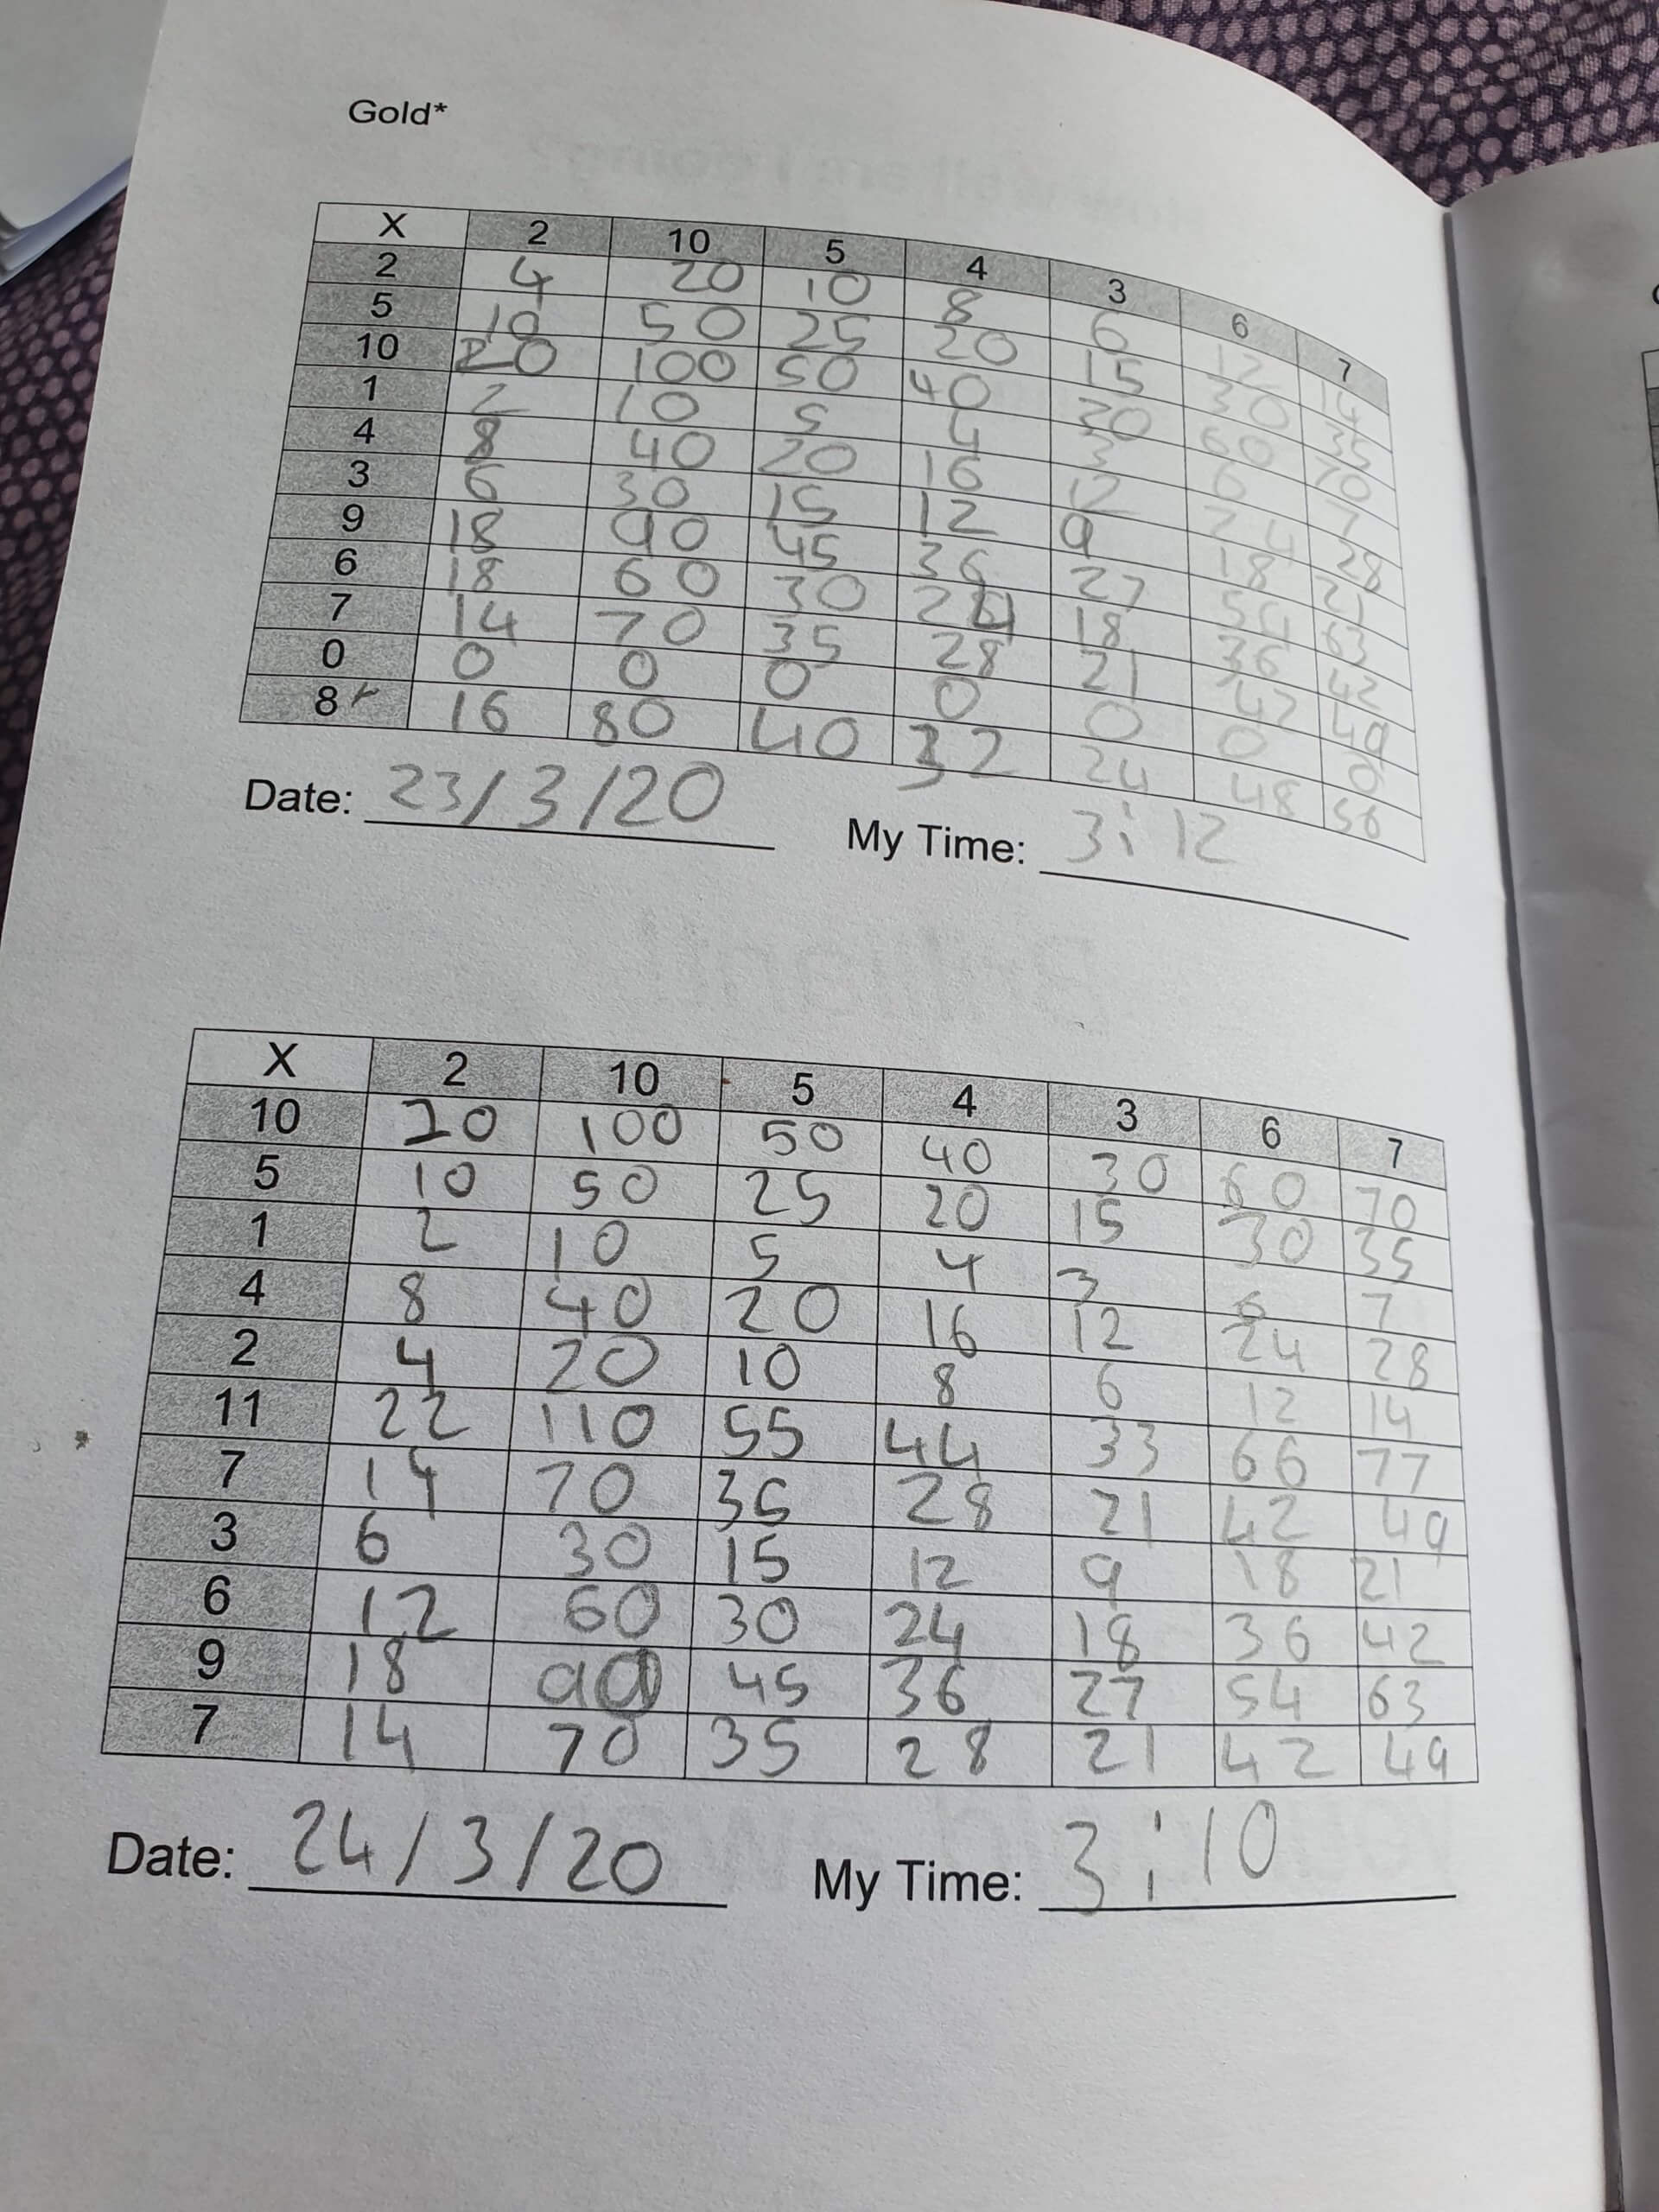 Gold*
X 2 10 5 4 3 6 7
2 4 20 10 8 6 12 14
5 10 50 25 20 15 30 35
10 20 100 50 40 30 60 70
1 2 10 5 4 3 6 7
4 8 40 20 16 12 24 28
3 6 30 15 12 9 18 21
9 18 90 45 36 27 54 63
6 18 60 30 24 18 36 42
7 14 70 35 28 21 42 49
0 0 0 0 0 0 0 0
8 16 80 40 32 24 48 56
Date: 23/3/20 My Time: 3:12
X 2 10 5 4 3 6 7
10 20 100 50 40 30 60 70
5 10 50 25 20 15 30 35
1 2 10 5 4 3 6 7
4 8 40 20 16 12 24 28
2 4 20 10 8 6 12 14
11 22 110 55 44 33 66 77
7 14 70 35 28 21 42 49
3 6 30 15 12 9 18 21
6 12 60 30 24 18 36 42
9 18 90 45 36 27 54 63
7 14 70 35 28 21 42 49
Date: 24/3/20 My Time: 3:10